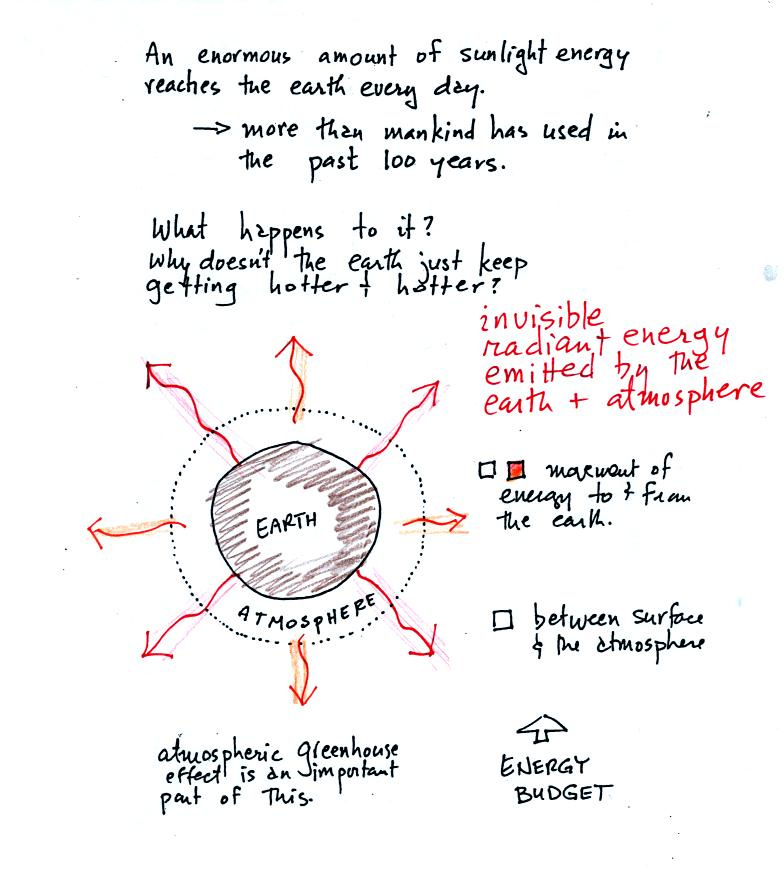 An enormous amount of sunlight energy
reaches the earth every day.
→ more than mankind has used in
the past 100 years.
What happens to it?
Why doesn't the earth just keep
getting hotter & hotter?
invisible
radiant energy
emitted by the
earth + atmosphere
EARTH
ATMOSPHERE
movement of
energy to & from
the earth.
between surface
& the atmosphere
atmospheric greenhouse
effect is an important
part of this.
ENERGY
BUDGET